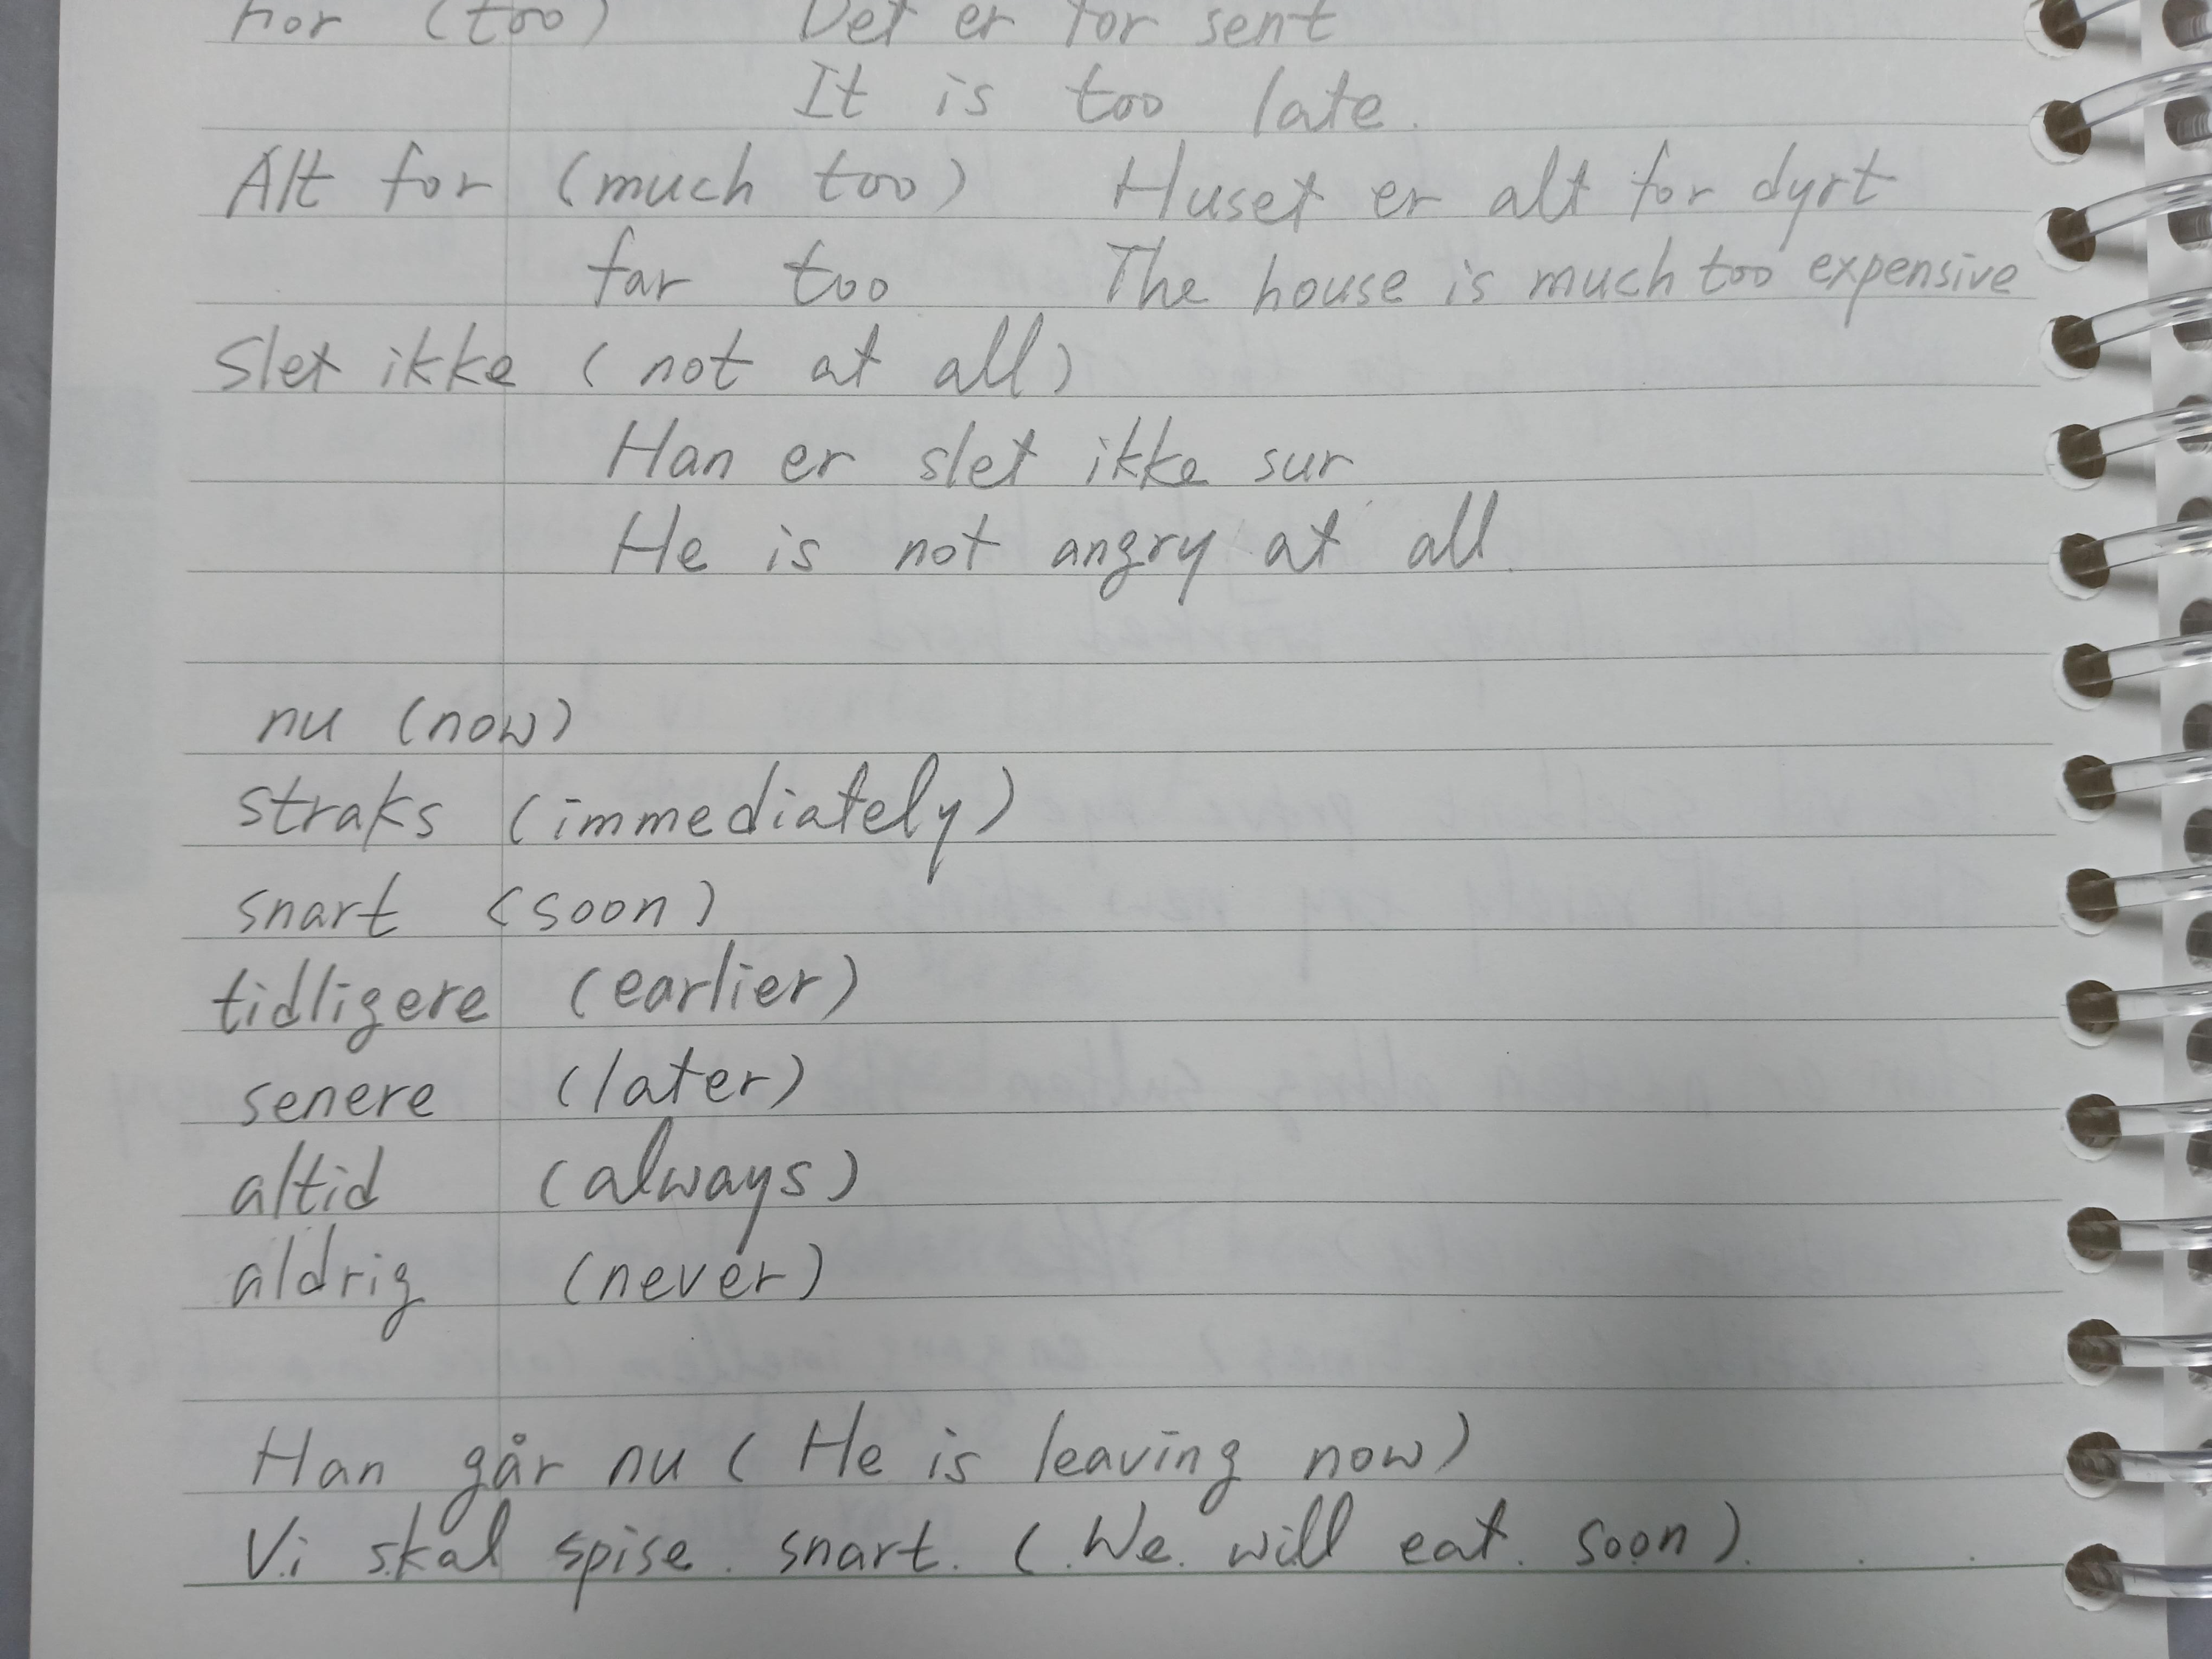 For (too) Det er for sent
It is too late.
Alt for (much too) Huset er alt for dyrt
far too The house is much too expensive
Slet ikke (not at all)
Han er slet ikke sur
He is not angry at all.
nu (now)
straks (immediately)
snart (soon)
tidligere (earlier)
senere (later)
altid (always)
aldrig (never)
Han går nu (He is leaving now)
Vi skal spise snart. (We will eat soon).